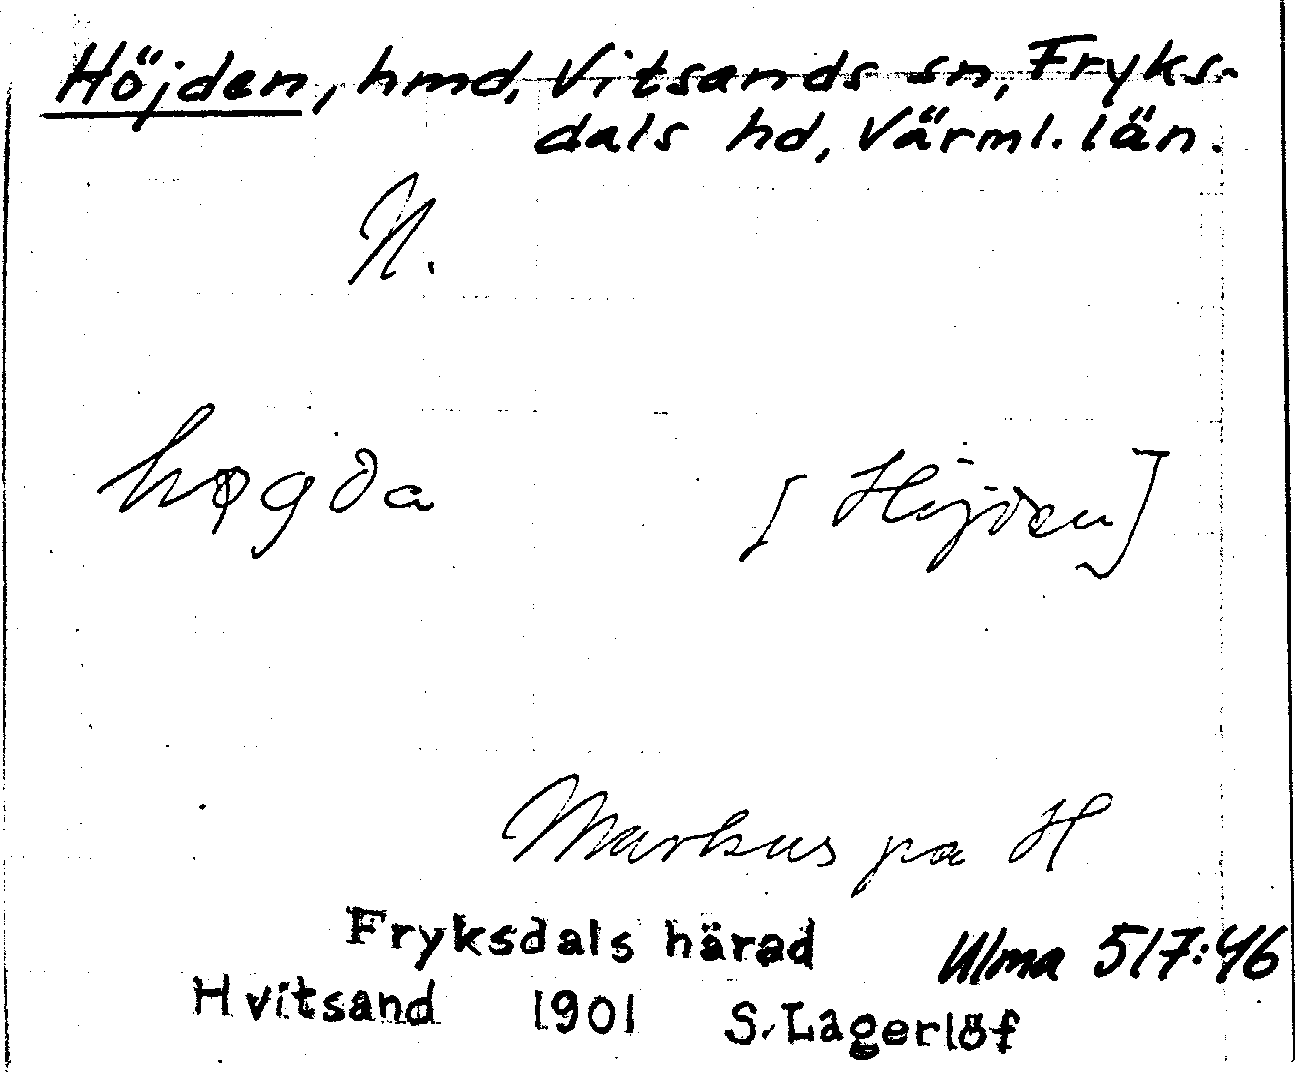 Höjden, hmd, Vitsands sn, Fryks-
dals hd, Värml. län.
N.
høgda [Höjden]
Markus på H
Fryksdals härad Ulma 517:46
Hvitsand 1901 S. Lagerlöf